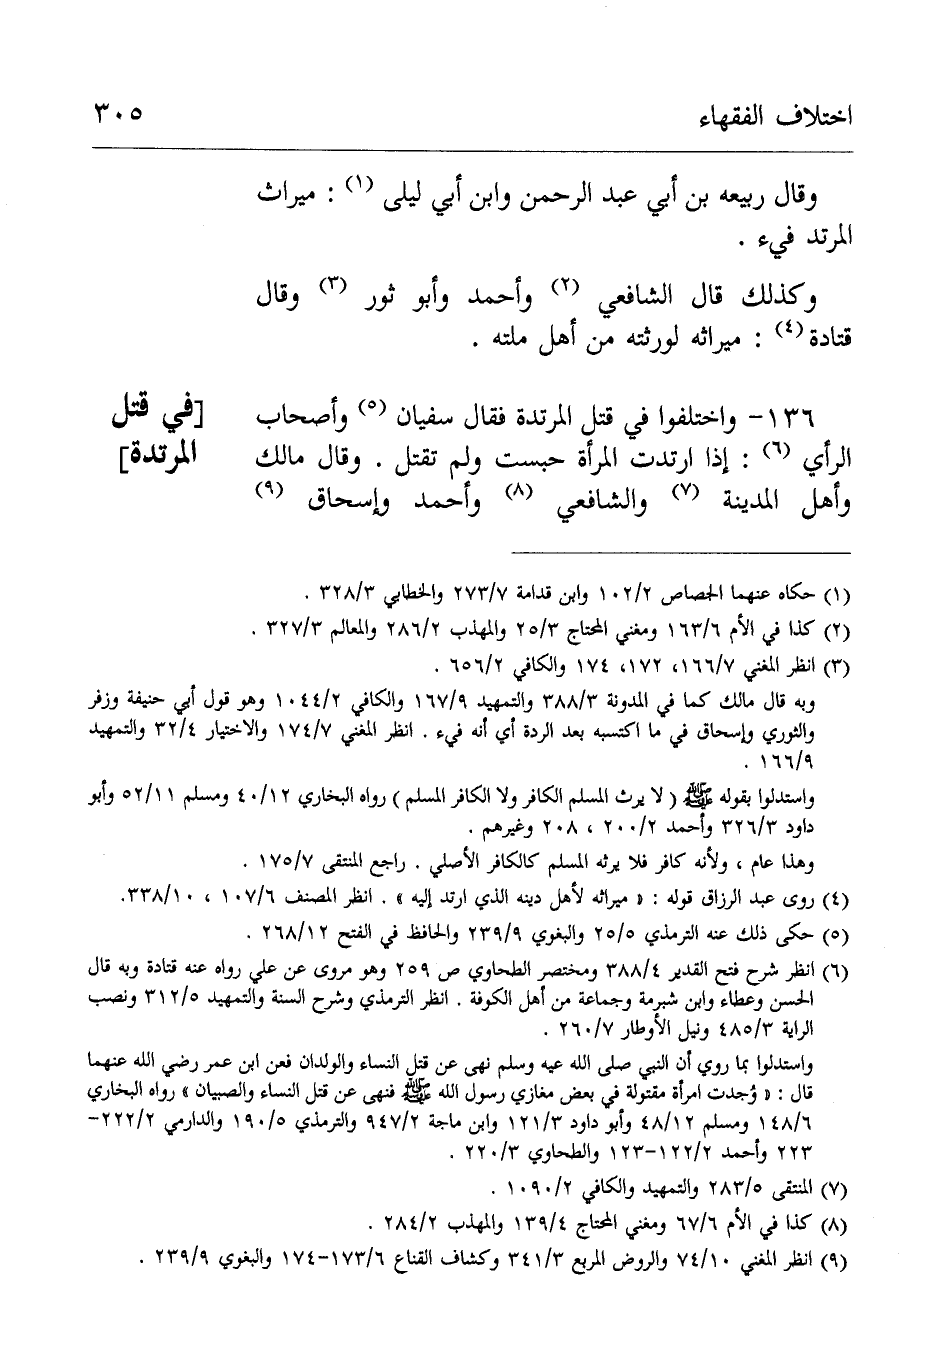 اختلاف الفقهاء ٣٠٥
وقال ربيعه بن أبي عبد الرحمن وابن أبي ليلى (١) : ميراث
المرتد فيء .
وكذلك قال الشافعي (٢) وأحمد وأبو ثور (٣) وقال
قتادة (٤) : ميراثه لورثته من أهل ملته .
[في قتل
المرتدة]
١٣٦- واختلفوا في قتل المرتدة فقال سفيان (٥) وأصحاب
الرأي (٦) : إذا ارتدت المرأة حبست ولم تقتل . وقال مالك
وأهل المدينة (٧) والشافعي (٨) وأحمد وإسحاق (٩)
(١) حكاه عنهما الجصاص ١٠٢/٢ وابن قدامة ٢٧٣/٧ والخطابي ٣٢٨/٣ .
(٢) كذا في الأم ١٦٣/٦ ومغني المحتاج ٢٥/٣ والمهذب ٢٨٦/٢ والمعالم ٣٢٧/٣ .
(٣) انظر المغني ١٦٦/٧، ١٧٢، ١٧٤ والكافي ٦٥٦/٢ .
وبه قال مالك كما في المدونة ٣٨٨/٣ والتمهيد ١٦٧/٩ والكافي ١٠٤٤/٢ وهو قول أبي حنيفة وزفر
والثوري وإسحاق في ما اكتسبه بعد الردة أي أنه فيء . انظر المغني ١٧٤/٧ والاختيار ٣٢/٤ والتمهيد
١٦٦/٩ .
واستدلوا بقوله ﷺ ( لا يرث المسلم الكافر ولا الكافر المسلم ) رواه البخاري ٤٠/١٢ ومسلم ٥٢/١١ وأبو
داود ٣٢٦/٣ وأحمد ٢٠٠/٢ ، ٢٠٨ وغيرهم .
وهذا عام ، ولأنه كافر فلا يرثه المسلم كالكافر الأصلي . راجع المنتقى ١٧٥/٧ .
(٤) روى عبد الرزاق قوله : « ميراثه لأهل دينه الذي ارتد إليه » . انظر المصنف ١٠٧/٦ ، ٣٣٨/١٠.
(٥) حكى ذلك عنه الترمذي ٢٥/٥ والبغوي ٢٣٩/٩ والحافظ في الفتح ٢٦٨/١٢ .
(٦) انظر شرح فتح القدير ٣٨٨/٤ ومختصر الطحاوي ص ٢٥٩ وهو مروى عن علي رواه عنه قتادة وبه قال
الحسن وعطاء وابن شبرمة وجماعة من أهل الكوفة . انظر الترمذي وشرح السنة والتمهيد ٣١٢/٥ ونصب
الراية ٤٨٥/٣ ونيل الأوطار ٢٦٠/٧ .
واستدلوا بما روي أن النبي صلى الله عيه وسلم نهى عن قتل النساء والولدان فعن ابن عمر رضي الله عنهما
قال : « وُجدت امرأة مقتولة في بعض مغازي رسول الله ﷺ فنهى عن قتل النساء والصبيان » رواه البخاري
١٤٨/٦ ومسلم ٤٨/١٢ وأبو داود ١٢١/٣ وابن ماجة ٩٤٧/٢ والترمذي ١٩٠/٥ والدارمي ٢٢٢/٢-
٢٢٣ وأحمد ١٢٢/٢-١٢٣ والطحاوي ٢٢٠/٣ .
(٧) المنتقى ٢٨٣/٥ والتمهيد والكافي ١٠٩٠/٢ .
(٨) كذا في الأم ٦٧/٦ ومغني المحتاج ١٣٩/٤ والمهذب ٢٨٤/٢ .
(٩) انظر المغني ٧٤/١٠ والروض المربع ٣٤١/٣ وكشاف القناع ١٧٣/٦-١٧٤ والبغوي ٢٣٩/٩ .